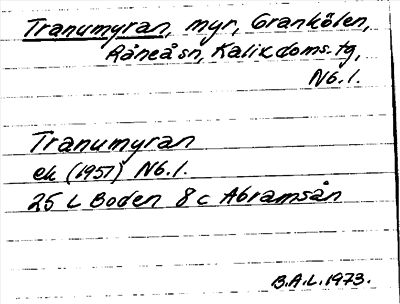 Tranumyran, myr, Grankölen,
Råneå sn, Kalix doms. tg,
Nb. l.
Tranumyran
ek (1957) Nb. l.
25 L Boden 8 c Abramsån
B.A.L. 1973.